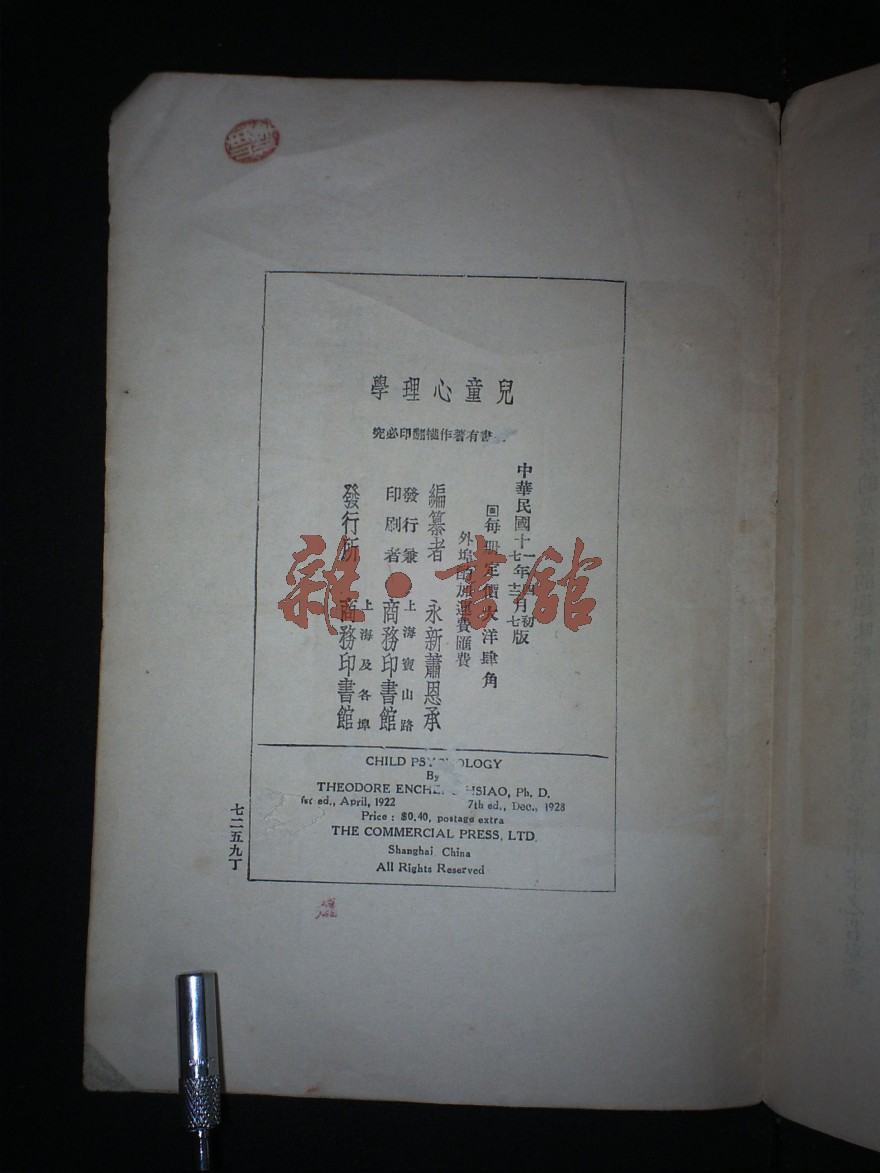 兒童心理學
書有著作權翻印必究
中華民國十一年四月初版
十七年十二月七版
每冊定價大洋肆角
外埠酌加運費匯費
編纂者 永新蕭恩承
發行兼印刷者 上海寶山路 商務印書館
發行所 上海及各埠 商務印書館
CHILD PSYCHOLOGY
By
THEODORE ENCHENG HSIAO, Ph. D.
1st ed., April, 1922 7th ed., Dec., 1928
Price : $0.40, postage extra
THE COMMERCIAL PRESS, LTD.
Shanghai, China
All Rights Reserved
七二五九丁
雜·書館